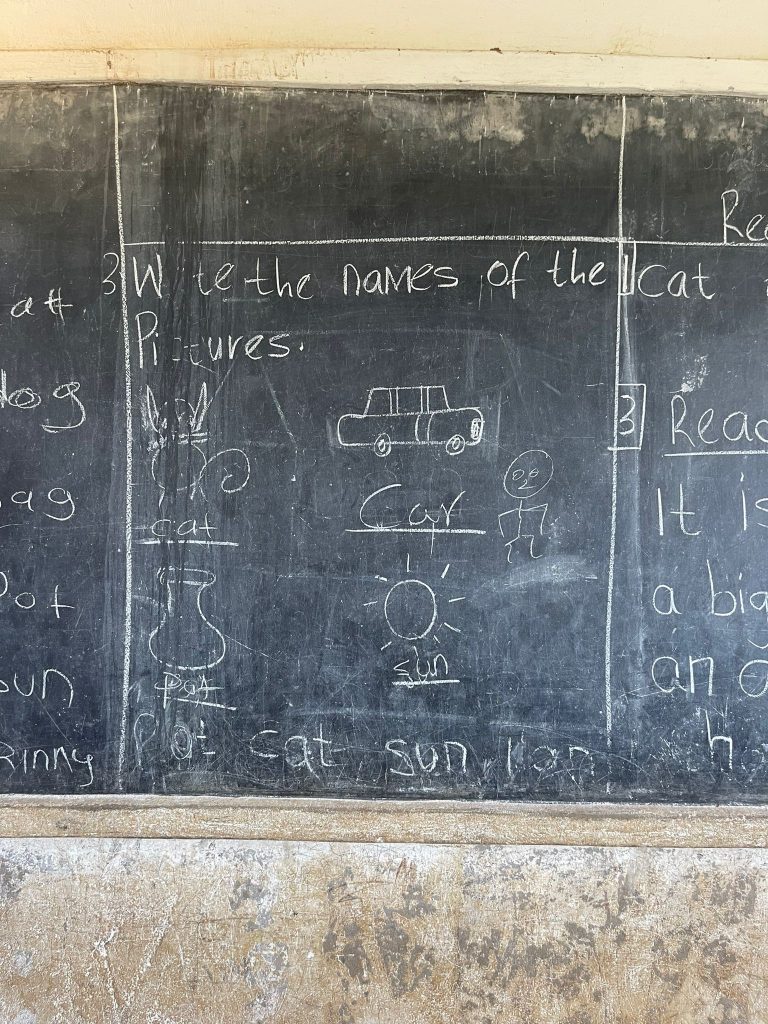 at.
dog
ag
Pot
sun
Rinny
3
W te the names of the
Pictures.
cat
Car
Pot
sun
Pot cat sun
1 Cat
3 Read
It is
a big
an